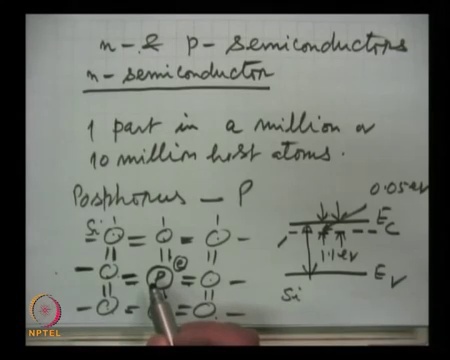 n- & p- semiconductors
n- semiconductor
1 part in a million or
10 million host atoms.
Posphorus - P
0.05 eV
Si
Ec
e
P
1.1 eV
Ev
Si
NPTEL